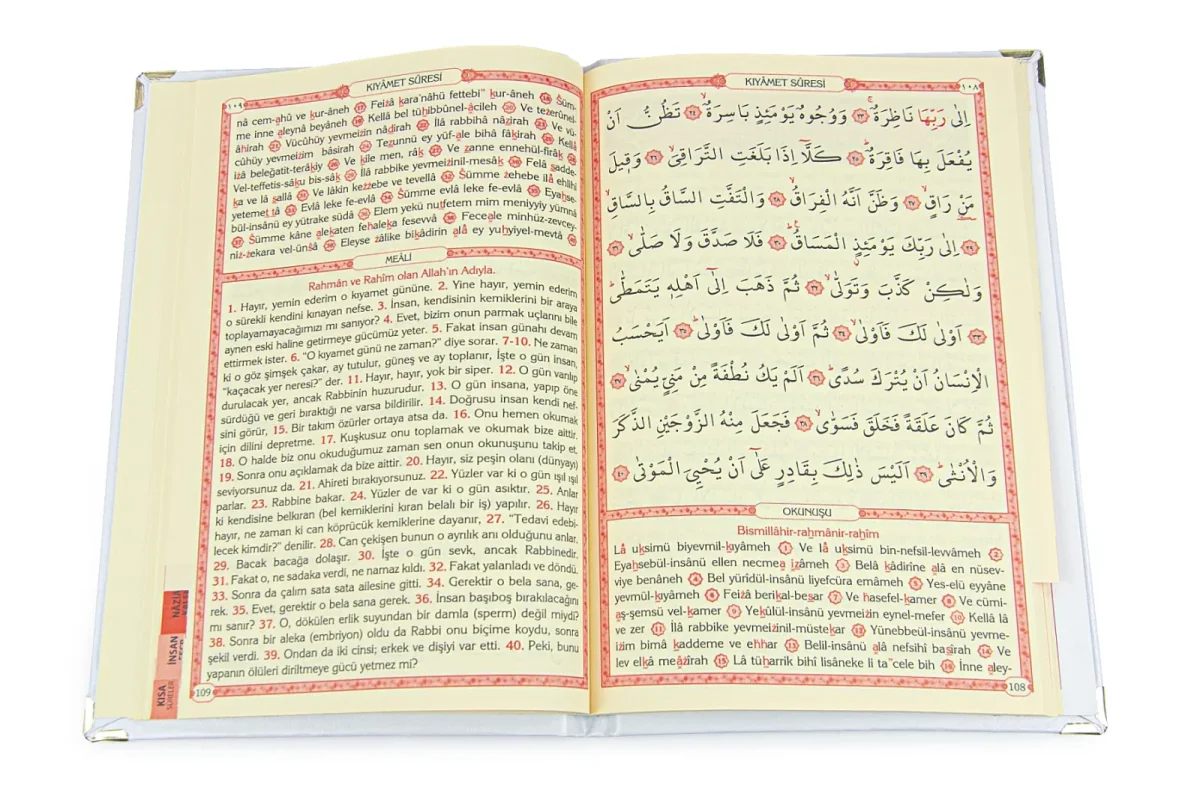 KIYÂMET SÛRESİ
١٠٨
اِلٰى رَبِّهَا نَاظِرَةٌۚ ﴿٢٣﴾ وَوُجُوهٌ يَوْمَئِذٍ بَاسِرَةٌۙ ﴿٢٤﴾ تَظُنُّ اَنْ
يُفْعَلَ بِهَا فَاقِرَةٌۜ ﴿٢٥﴾ كَلَّٓا اِذَا بَلَغَتِ التَّرَاقِيَۙ ﴿٢٦﴾ وَق۪يلَ
مَنْ رَاقٍۙ ﴿٢٧﴾ وَظَنَّ اَنَّهُ الْفِرَاقُۙ ﴿٢٨﴾ وَالْتَفَّتِ السَّاقُ بِالسَّاقِۙ
﴿٢٩﴾ اِلٰى رَبِّكَ يَوْمَئِذٍ الْمَسَاقُۜ ﴿٣٠﴾ فَلَا صَدَّقَ وَلَا صَلّٰىۙ ﴿٣١﴾
وَلٰكِنْ كَذَّبَ وَتَوَلّٰىۙ ﴿٣٢﴾ ثُمَّ ذَهَبَ اِلٰٓى اَهْلِه۪ يَتَمَطّٰىۜ
﴿٣٣﴾ اَوْلٰى لَكَ فَاَوْلٰىۙ ﴿٣٤﴾ ثُمَّ اَوْلٰى لَكَ فَاَوْلٰىۜ ﴿٣٥﴾ اَيَحْسَبُ
الْاِنْسَانُ اَنْ يُتْرَكَ سُدًىۜ ﴿٣٦﴾ اَلَمْ يَكُ نُطْفَةً مِنْ مَنِيٍّ يُمْنٰىۙ ﴿٣٧﴾
ثُمَّ كَانَ عَلَقَةً فَخَلَقَ فَسَوّٰىۙ ﴿٣٨﴾ فَجَعَلَ مِنْهُ الزَّوْجَيْنِ الذَّكَرَ
وَالْاُنْثٰىۜ ﴿٣٩﴾ اَلَيْسَ ذٰلِكَ بِقَادِرٍ عَلٰٓى اَنْ يُحْيِيَ الْمَوْتٰى ﴿٤٠﴾
OKUNUŞU
Bismillâhir-rahmânir-rahîm
Lâ uksimü biyevmil-kıyâmeh 1 Ve lâ uksimü bin-nefsil-levvâmeh 2
Eyahsebül-insânü ellen necmea izâmeh 3 Belâ kâdirîne alâ en nüsev-
viye benâneh 4 Bel yürîdül-insânü liyefcüra emâmeh 5 Yes-elü eyyâne
yevmül-kıyâmeh 6 Feizâ berikal-besar 7 Ve hasefel-kamer 8 Ve cümi-
aş-şemsü vel-kamer 9 Yekûlül-insânü yevmeizin eynel-mefer 10 Kellâ lâ
ve zer 11 İlâ rabbike yevmeizinil-müstekar 12 Yünebbeül-insânü yevme-
izim bimâ kaddeme ve ehhar 13 Belil-insânü alâ nefsihî basîrah 14 Ve
lev elkâ meâzîrah 15 Lâ tüharrik bihî lisâneke li ta"cele bih 16 İnne aley-
108
KIYÂMET SÛRESİ
١٠٩
nâ cem-ahû ve kur-âneh 17 Feizâ kara'nâhü fettebi" kur-âneh 18 Süm-
me inne aleynâ beyâneh 19 Kellâ bel tühibbûnel-âcileh 20 Ve tezerûnel-
âhirah 21 Vücûhüy yevmeizin nâdirah 22 İlâ rabbihâ nâzirah 23 Ve vü-
cûhüy yevmeizim bâsirah 24 Tezunnü ey yüf-ale bihâ fâkirah 25 Kellâ
izâ beleğatit-terâkıy 26 Ve kîle men, râk 27 Ve zanne ennehül-firâk 28
Vel-teffetis-sâku bis-sâk 29 İlâ rabbike yevmeizinil-mesâk 30 Felâ sadde-
ka ve lâ sallâ 31 Ve lâkin kezzebe ve tevellâ 32 Sümme zehebe ilâ ehlihî
yetemettâ 33 Evlâ leke fe-evlâ 34 Sümme evlâ leke fe-evlâ 35 Eyahse-
bül-insânü ey yütrake südâ 36 Elem yekü nutfetem mim meniyyiy yümnâ
37 Sümme kâne alekaten fehaleka fesevvâ 38 Feceale minhüz-zevcey-
niz-zekara vel-ünsâ 39 Eleyse zâlike bikâdirin alâ ey yuhyiyel-mevtâ 40
MEÂLİ
Rahmân ve Rahîm olan Allah'ın Adıyla.
1. Hayır, yemin ederim o kıyamet gününe. 2. Yine hayır, yemin ederim
o sürekli kendini kınayan nefse. 3. İnsan, kendisinin kemiklerini bir araya
toplayamayacağımızı mı sanıyor? 4. Evet, bizim onun parmak uçlarını bile
aynen eski haline getirmeye gücümüz yeter. 5. Fakat insan günahı devam
ettirmek ister. 6. "O kıyamet günü ne zaman?" diye sorar. 7-10. Ne zaman
ki o göz şimşek çakar, ay tutulur, güneş ve ay toplanır, İşte o gün insan,
"kaçacak yer neresi?" der. 11. Hayır, hayır, yok bir siper. 12. O gün varılıp
durulacak yer, ancak Rabbinin huzurudur. 13. O gün insana, yapıp öne
sürdüğü ve geri bıraktığı ne varsa bildirilir. 14. Doğrusu insan kendi nef-
sini görür, 15. Bir takım özürler ortaya atsa da. 16. Onu hemen okumak
için dilini depretme. 17. Kuşkusuz onu toplamak ve okumak bize aittir.
18. O halde biz onu okuduğumuz zaman sen onun okunuşunu takip et.
19. Sonra onu açıklamak da bize aittir. 20. Hayır, siz peşin olanı (dünyayı)
seviyorsunuz da. 21. Ahireti bırakıyorsunuz. 22. Yüzler var ki o gün ışıl ışıl
parlar. 23. Rabbine bakar. 24. Yüzler de var ki o gün asıktır. 25. Anlar
ki kendisine belkıran (bel kemiklerini kıran belalı bir iş) yapılır. 26. Hayır
hayır, ne zaman ki can köprücük kemiklerine dayanır, 27. "Tedavi edebi-
lecek kimdir?" denilir. 28. Can çekişen bunun o ayrılık anı olduğunu anlar.
29. Bacak bacağa dolaşır. 30. İşte o gün sevk, ancak Rabbinedir.
31. Fakat o, ne sadaka verdi, ne namaz kıldı. 32. Fakat yalanladı ve döndü.
33. Sonra da çalım sata sata ailesine gitti. 34. Gerektir o bela sana, ge-
rek. 35. Evet, gerektir o bela sana gerek. 36. İnsan başıboş bırakılacağını
mı sanır? 37. O, dökülen erlik suyundan bir damla (sperm) değil miydi?
38. Sonra bir aleka (embriyon) oldu da Rabbi onu biçime koydu, sonra
şekil verdi. 39. Ondan da iki cinsi; erkek ve dişiyi var etti. 40. Peki, bunu
yapanın ölüleri diriltmeye gücü yetmez mi?
109
İNSAN
KISA
SÛRELER